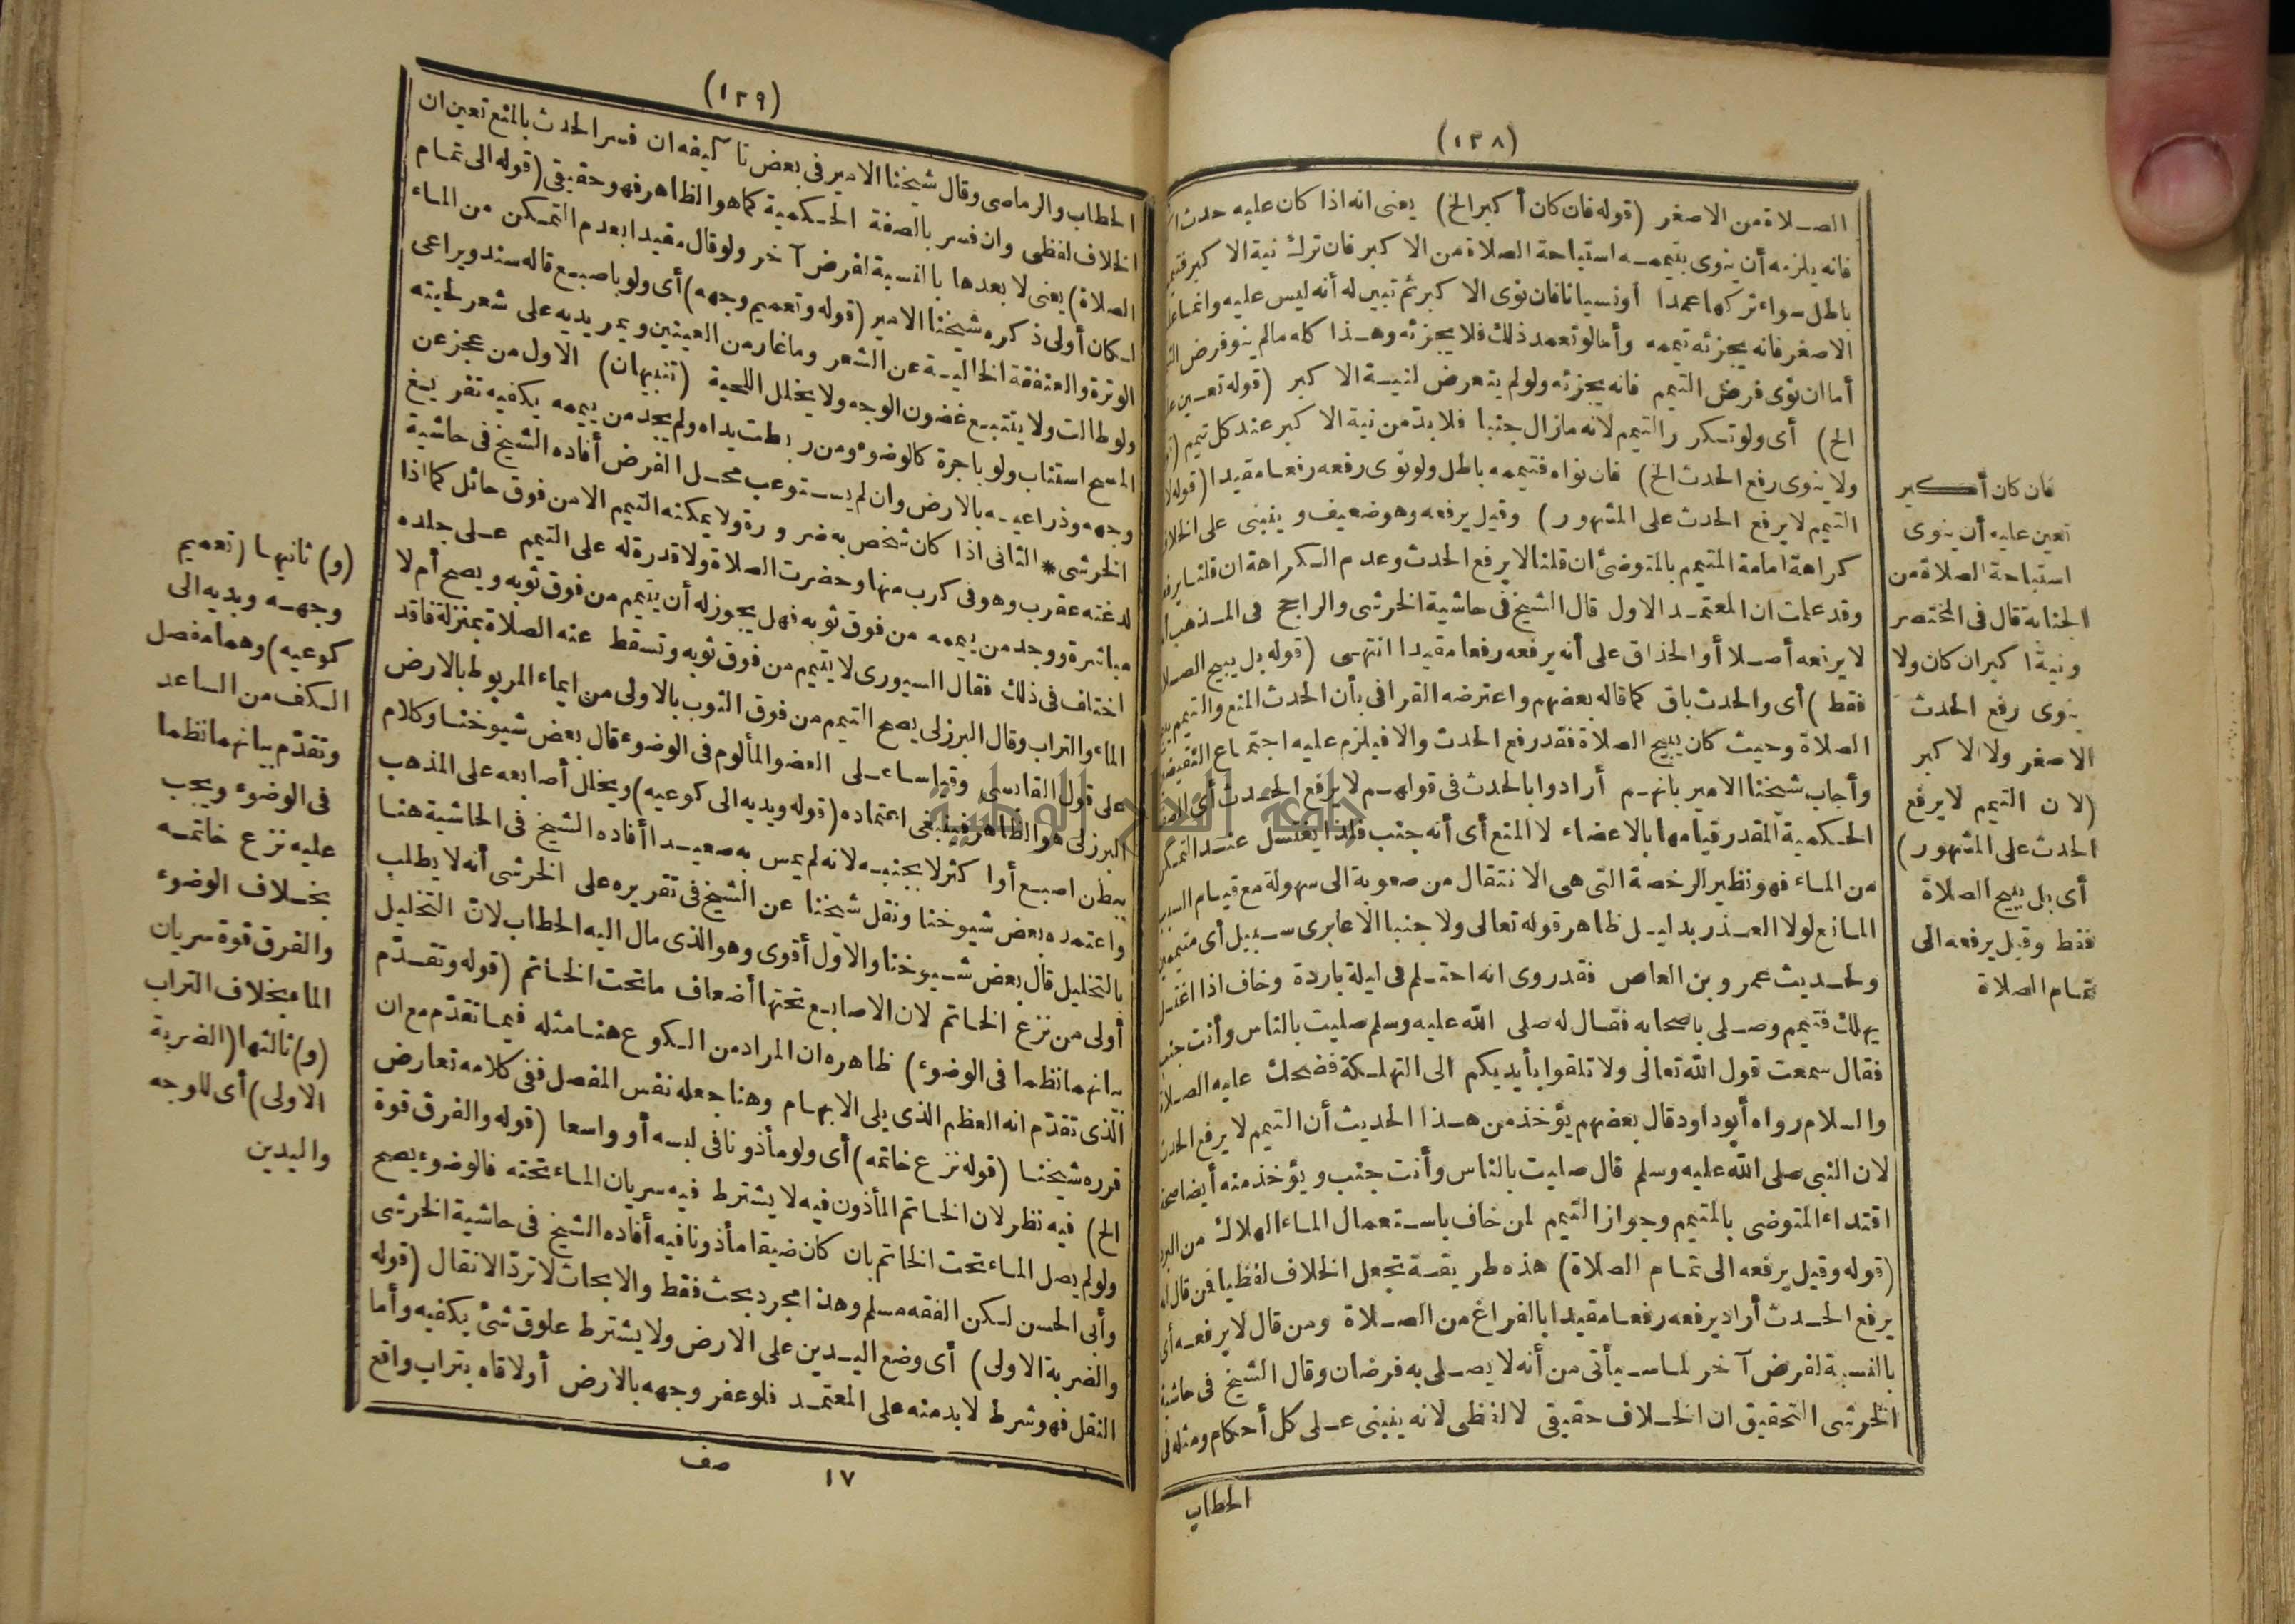 (١٣٨)
الصلاة من الاصغر (قوله فان كان أكبر الخ) يعنى انه اذا كان عليه حدث
فانه يلزمه أن ينوى بتيممه استباحة الصلاة من الاكبر فان ترك نية الاكبر
باطل سواء تركها عمدا أو نسيانا فان نوى الاكبر ثم تبين له أنه ليس عليه وانما
الاصغر فانه يجزئه تيممه وأما لو تعمد ذلك فلا يجزئه وهذا كله ما لم ينو فرض
أما ان نوى فرض التيمم فانه يجزئه ولو لم يتعرض لنية الاكبر (قوله تعين
الخ) أى ولو تكرر التيمم لانه مازال جنبا فلا بد من نية الاكبر عند كل تيمم
ولا ينوى رفع الحدث الخ) فان نواه فتيممه باطل ولو نوى رفعه رفعا مقيدا (قوله
التيمم لا يرفع الحدث على المشهور) وقيل يرفعه وهو ضعيف وينبنى على
كراهة امامة المتيمم بالمتوضئ ان قلنا لا يرفع الحدث وعدم الكراهة ان قلنا
وقد علمت ان المعتمد الاول قال الشيخ فى حاشية الخرشى والراجح فى المذهب
لا يرفعه أصلا أو الحذاق على أنه يرفعه رفعا مقيدا انتهى (قوله بل يبيح
فقط) أى والحدث باق كما قاله بعضهم واعترضه القرافى بأن الحدث المنع والتيمم
الصلاة وحيث كان يبيح الصلاة فقد رفع الحدث والا فيلزم عليه اجتماع
وأجاب شيخنا الامير بانهم أرادوا بالحدث فى قولهم لا يرفع الحدث أى
الحكمية المقدر قيامها بالاعضاء لا المنع أى أنه جنب فلذا يغتسل عند
من الماء فهو نظير الرخصة التى هى الانتقال من صعوبة الى سهولة مع قيام
المانع لولا العذر بدليل ظاهر قوله تعالى ولا جنبا الا عابرى سبيل أى
ولحديث عمرو بن العاص فقد روى انه احتلم فى ليلة باردة وخاف اذا
يهلك فتيمم وصلى باصحابه فقال له صلى الله عليه وسلم صليت بالناس وأنت جنب
فقال سمعت قول الله تعالى ولا تلقوا بأيديكم الى التهلكة فضحك عليه
والسلام رواه أبو داود قال بعضهم يؤخذ من هذا الحديث أن التيمم لا يرفع
لان النبى صلى الله عليه وسلم قال صليت بالناس وأنت جنب ويؤخذ منه أيضا
اقتداء المتوضى بالمتيمم وجواز التيمم لمن خاف باستعمال الماء الهلاك من
(قوله وقيل يرفعه الى تمام الصلاة) هذه طريقة تجعل الخلاف لفظيا فمن قال
يرفع الحدث أراد يرفعه رفعا مقيدا بالفراغ من الصلاة ومن قال لا يرفعه
بالنسبة لفرض آخر لما سيأتى من أنه لا يصلى به فرضان وقال الشيخ فى
الخرشى التحقيق ان الخلاف حقيقى لا لفظى لانه ينبنى على كل أحكام ومثله
الحطاب
فان كان أكبر
تعين عليه أن ينوى
استباحة الصلاة من
الجنابة قال فى المختصر
ونية اكبر ان كان ولا
ينوى رفع الحدث
الاصغر ولا الاكبر
(لان التيمم لا يرفع
الحدث على المشهور)
أى بل يبيح الصلاة
فقط وقيل يرفعه الى
تمام الصلاة
(١٣٩)
الحطاب والرماصى وقال شيخنا الامير فى بعض تآليفه ان فسر الحدث بالمنع تعين ان
الخلاف لفظى وان فسر بالصفة الحكمية كما هو الظاهر فهو حقيقى (قوله الى تمام
الصلاة) يعنى لا بعدها بالنسبة لفرض آخر ولو قال مقيدا بعدم التمكن من الماء
لكان أولى ذكره شيخنا الامير (قوله وتعميم وجهه) أى ولو باصبع قاله سند ويراعى
الوترة والعنفقة الخالية عن الشعر وما غار من العينين ويمر يديه على شعر لحيته
ولو طالت ولا يتتبع غضون الوجه ولا يخلل اللحية (تنبيهان) الاول من عجز عن
المسح استناب ولو باجرة كالوضوء ومن ربطت يداه ولم يجد من ييممه يكفيه تفريغ
وجهه وذراعيه بالارض وان لم يستوعب محل الفرض أفاده الشيخ فى حاشية
الخرشى * الثانى اذا كان شخص به ضرورة ولا يمكنه التيمم الا من فوق حائل كما اذا
لدغته عقرب وهو فى كرب منها وحضرت الصلاة ولا قدرة له على التيمم على جلده
مباشرة ووجد من ييممه من فوق ثوبه فهل يجوز له أن يتيمم من فوق ثوبه ويصح أم لا
اختلف فى ذلك فقال السيورى لا يتيمم من فوق ثوبه وتسقط عنه الصلاة بمنزلة فاقد
الماء والتراب وقال البرزلى يصح التيمم من فوق الثوب بالاولى من ايماء المربوط بالارض
على قول القابسى وقياسا على العضو المألوم فى الوضوء قال بعض شيوخنا وكلام
البرزلى هو الظاهر فينبغى اعتماده (قوله ويديه الى كوعيه) ويخلل أصابعه على المذهب
ببطن اصبع أو اكثر لا بجنبه لانه لم يمس به صعيدا أفاده الشيخ فى الحاشية هنا
واعتمده بعض شيوخنا ونقل شيخنا عن الشيخ فى تقريره على الخرشى أنه لا يطلب
بالتخليل قال بعض شيوخنا والاول أقوى وهو الذى مال اليه الحطاب لان التخليل
أولى من نزع الخاتم لان الاصابع تحتها أضعاف ما تحت الخاتم (قوله وتقدم
بيانهما نظما فى الوضوء) ظاهره ان المراد من الكوع هنا مثله فيما تقدم مع ان
الذى تقدم انه العظم الذى يلى الابهام وهنا جعله نفس المفصل ففى كلامه تعارض
قرره شيخنا (قوله نزع خاتمه) أى ولو مأذونا فى لبسه أو واسعا (قوله والفرق قوة
الخ) فيه نظر لان الخاتم المأذون فيه لا يشترط فيه سريان الماء تحته فالوضوء يصح
ولو لم يصل الماء تحت الخاتم بان كان ضيقا مأذونا فيه أفاده الشيخ فى حاشية الخرشى
وأبى الحسن لكن الفقه مسلم وهذا مجرد بحث فقط والابحاث لا ترد الانقال (قوله
والضربة الاولى) أى وضع اليدين على الارض ولا يشترط علوق شئ بكفيه وأما
النقل فهو شرط لا بد منه على المعتمد فلو عفر وجهه بالارض أو لاقاه بتراب واقع
١٧
صف
(و) ثانيها (تعميم
وجهه ويديه الى
كوعيه) وهما مفصل
الكف من الساعد
وتقدم بيانهما نظما
فى الوضوء ويجب
عليه نزع خاتمه
بخلاف الوضوء
والفرق قوة سريان
الماء بخلاف التراب
(و) ثالثها (الضربة
الاولى) أى للوجه
واليدين
جامعة النجاح الوطنية